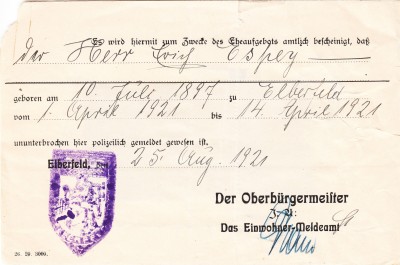 Es wird hiermit zum Zwecke des Eheaufgebots amtlich bescheinigt, daß
der Herr Erich Espey
geboren am 10. Juli 1897 zu Elberfeld
vom 1. April 1921 bis 14 April 1921
ununterbrochen hier polizeilich gemeldet gewesen ist.
Elberfeld, den 25. Aug. 1921
Der Oberbürgermeister
J. A:
Das Einwohner-Meldeamt